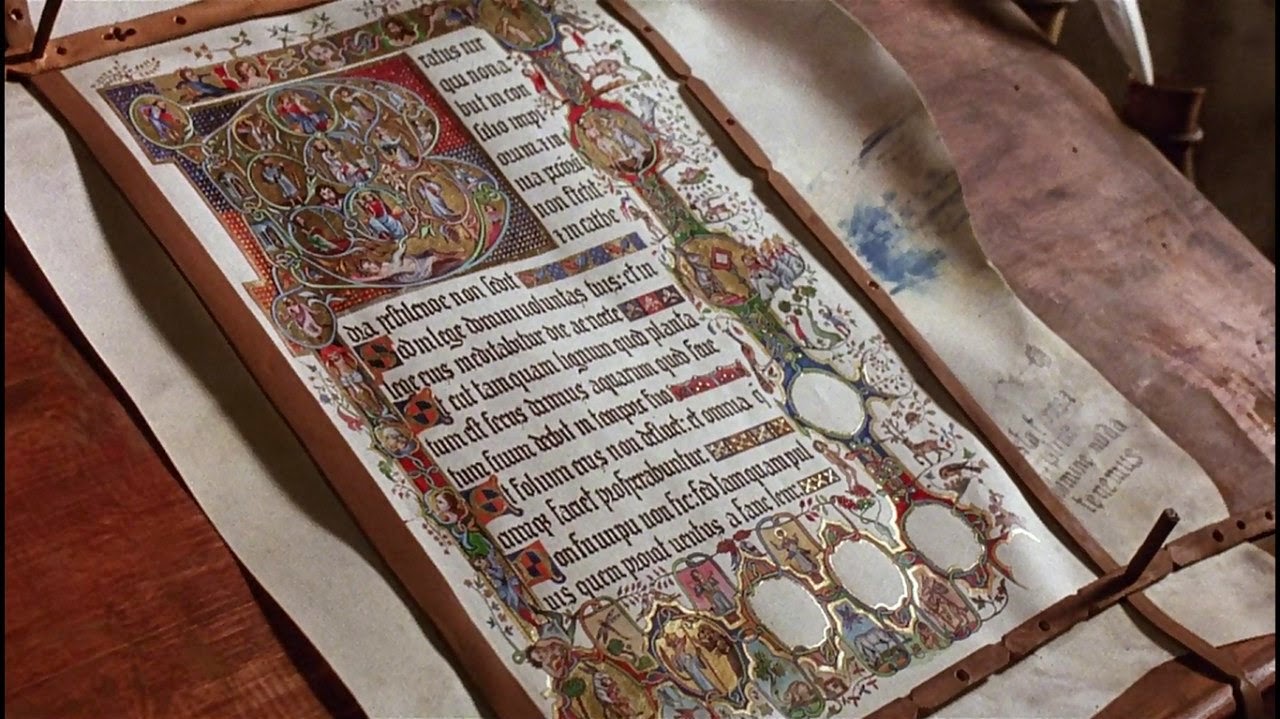 eatus uir
qui non a
biit in con
silio impi
orum. ⁊ in
uia
non stetit:
⁊ in cathe
dra pestilencie non sedit
Sed in lege domini uoluntas eius: et in
lege eius meditabitur die ac nocte
Et erit tamquam lignum quod planta
tum est secus aquarum quod
tum suum dabit in tempore suo
Et folium eius non defluet: et omnia q
cumq; faciet prosperabuntur
Non sic: sed tamquam pul
uis quem proicit uentus a facie terre
nuda
tenemus